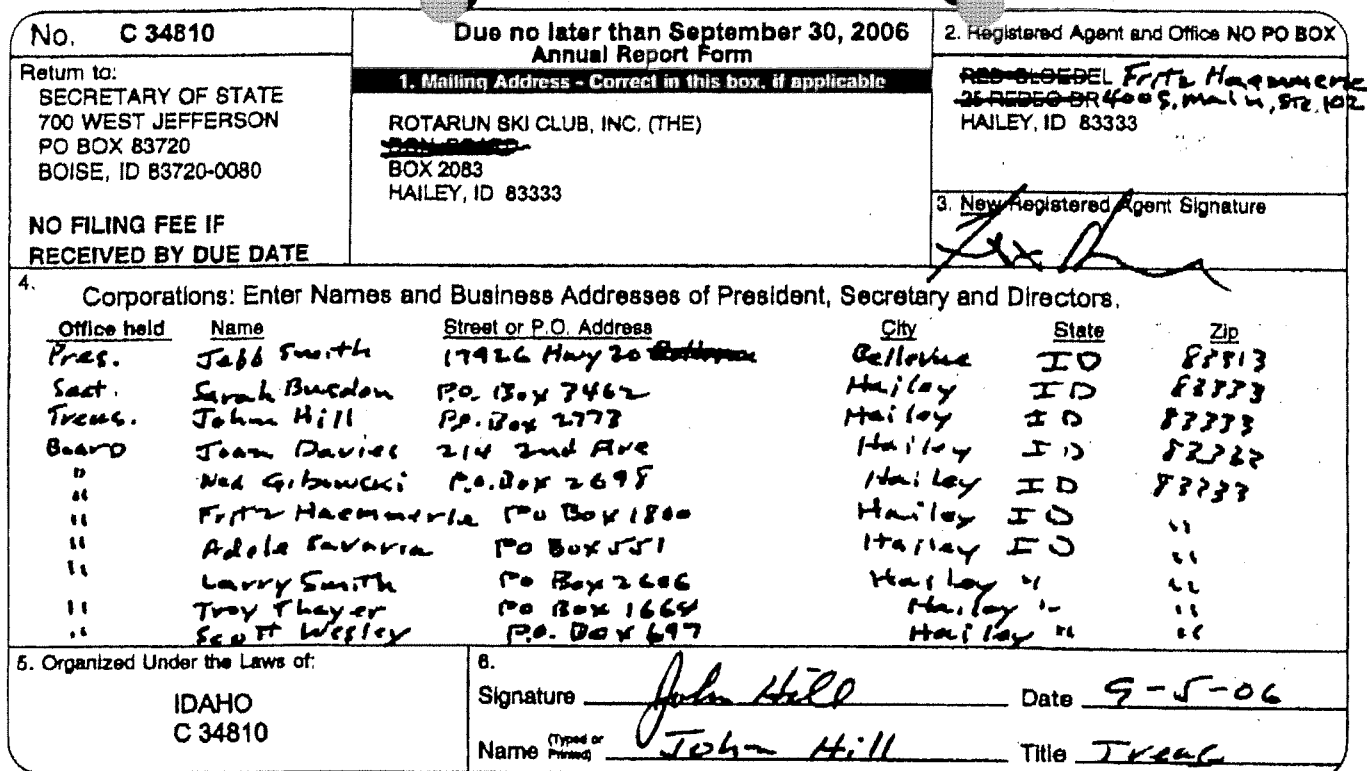 No. C 34810
Return to:
SECRETARY OF STATE
700 WEST JEFFERSON
PO BOX 83720
BOISE, ID 83720-0080
NO FILING FEE IF
RECEIVED BY DUE DATE
Due no later than September 30, 2006
Annual Report Form
1. Mailing Address - Correct in this box, if applicable
ROTARUN SKI CLUB, INC. (THE)
BOX 2083
HAILEY, ID 83333
2. Registered Agent and Office NO PO BOX
Fritz Haemmerle
400 S. Main, STE. 102
HAILEY, ID 83333
3. New Registered Agent Signature
4.
Corporations: Enter Names and Business Addresses of President, Secretary and Directors.
Office held Name Street or P.O. Address City State Zip
Pres. Jebb Smith 17926 Hwy 20 Bellevue ID 83313
Sect. Sarah P.O. Box 3462 Hailey ID 83333
Treas. John Hill P.O. Box 2773 Hailey ID 83333
Board Joan Davies 214 2nd Ave Hailey ID 83333
" Ned P.O. Box 2698 Hailey ID 83333
" Fritz Haemmerle PO Box 1800 Hailey ID "
" Adele Savaria PO Box 551 Hailey ID "
" Larry Smith PO Box 2606 Hailey " "
" Troy Thayer PO Box 1664 Hailey " "
" Scott Wesley P.O. Box 697 Hailey " "
5. Organized Under the Laws of:
IDAHO
C 34810
6.
Signature John Hill Date 9-5-06
Name (Typed or Printed) John Hill Title Treas